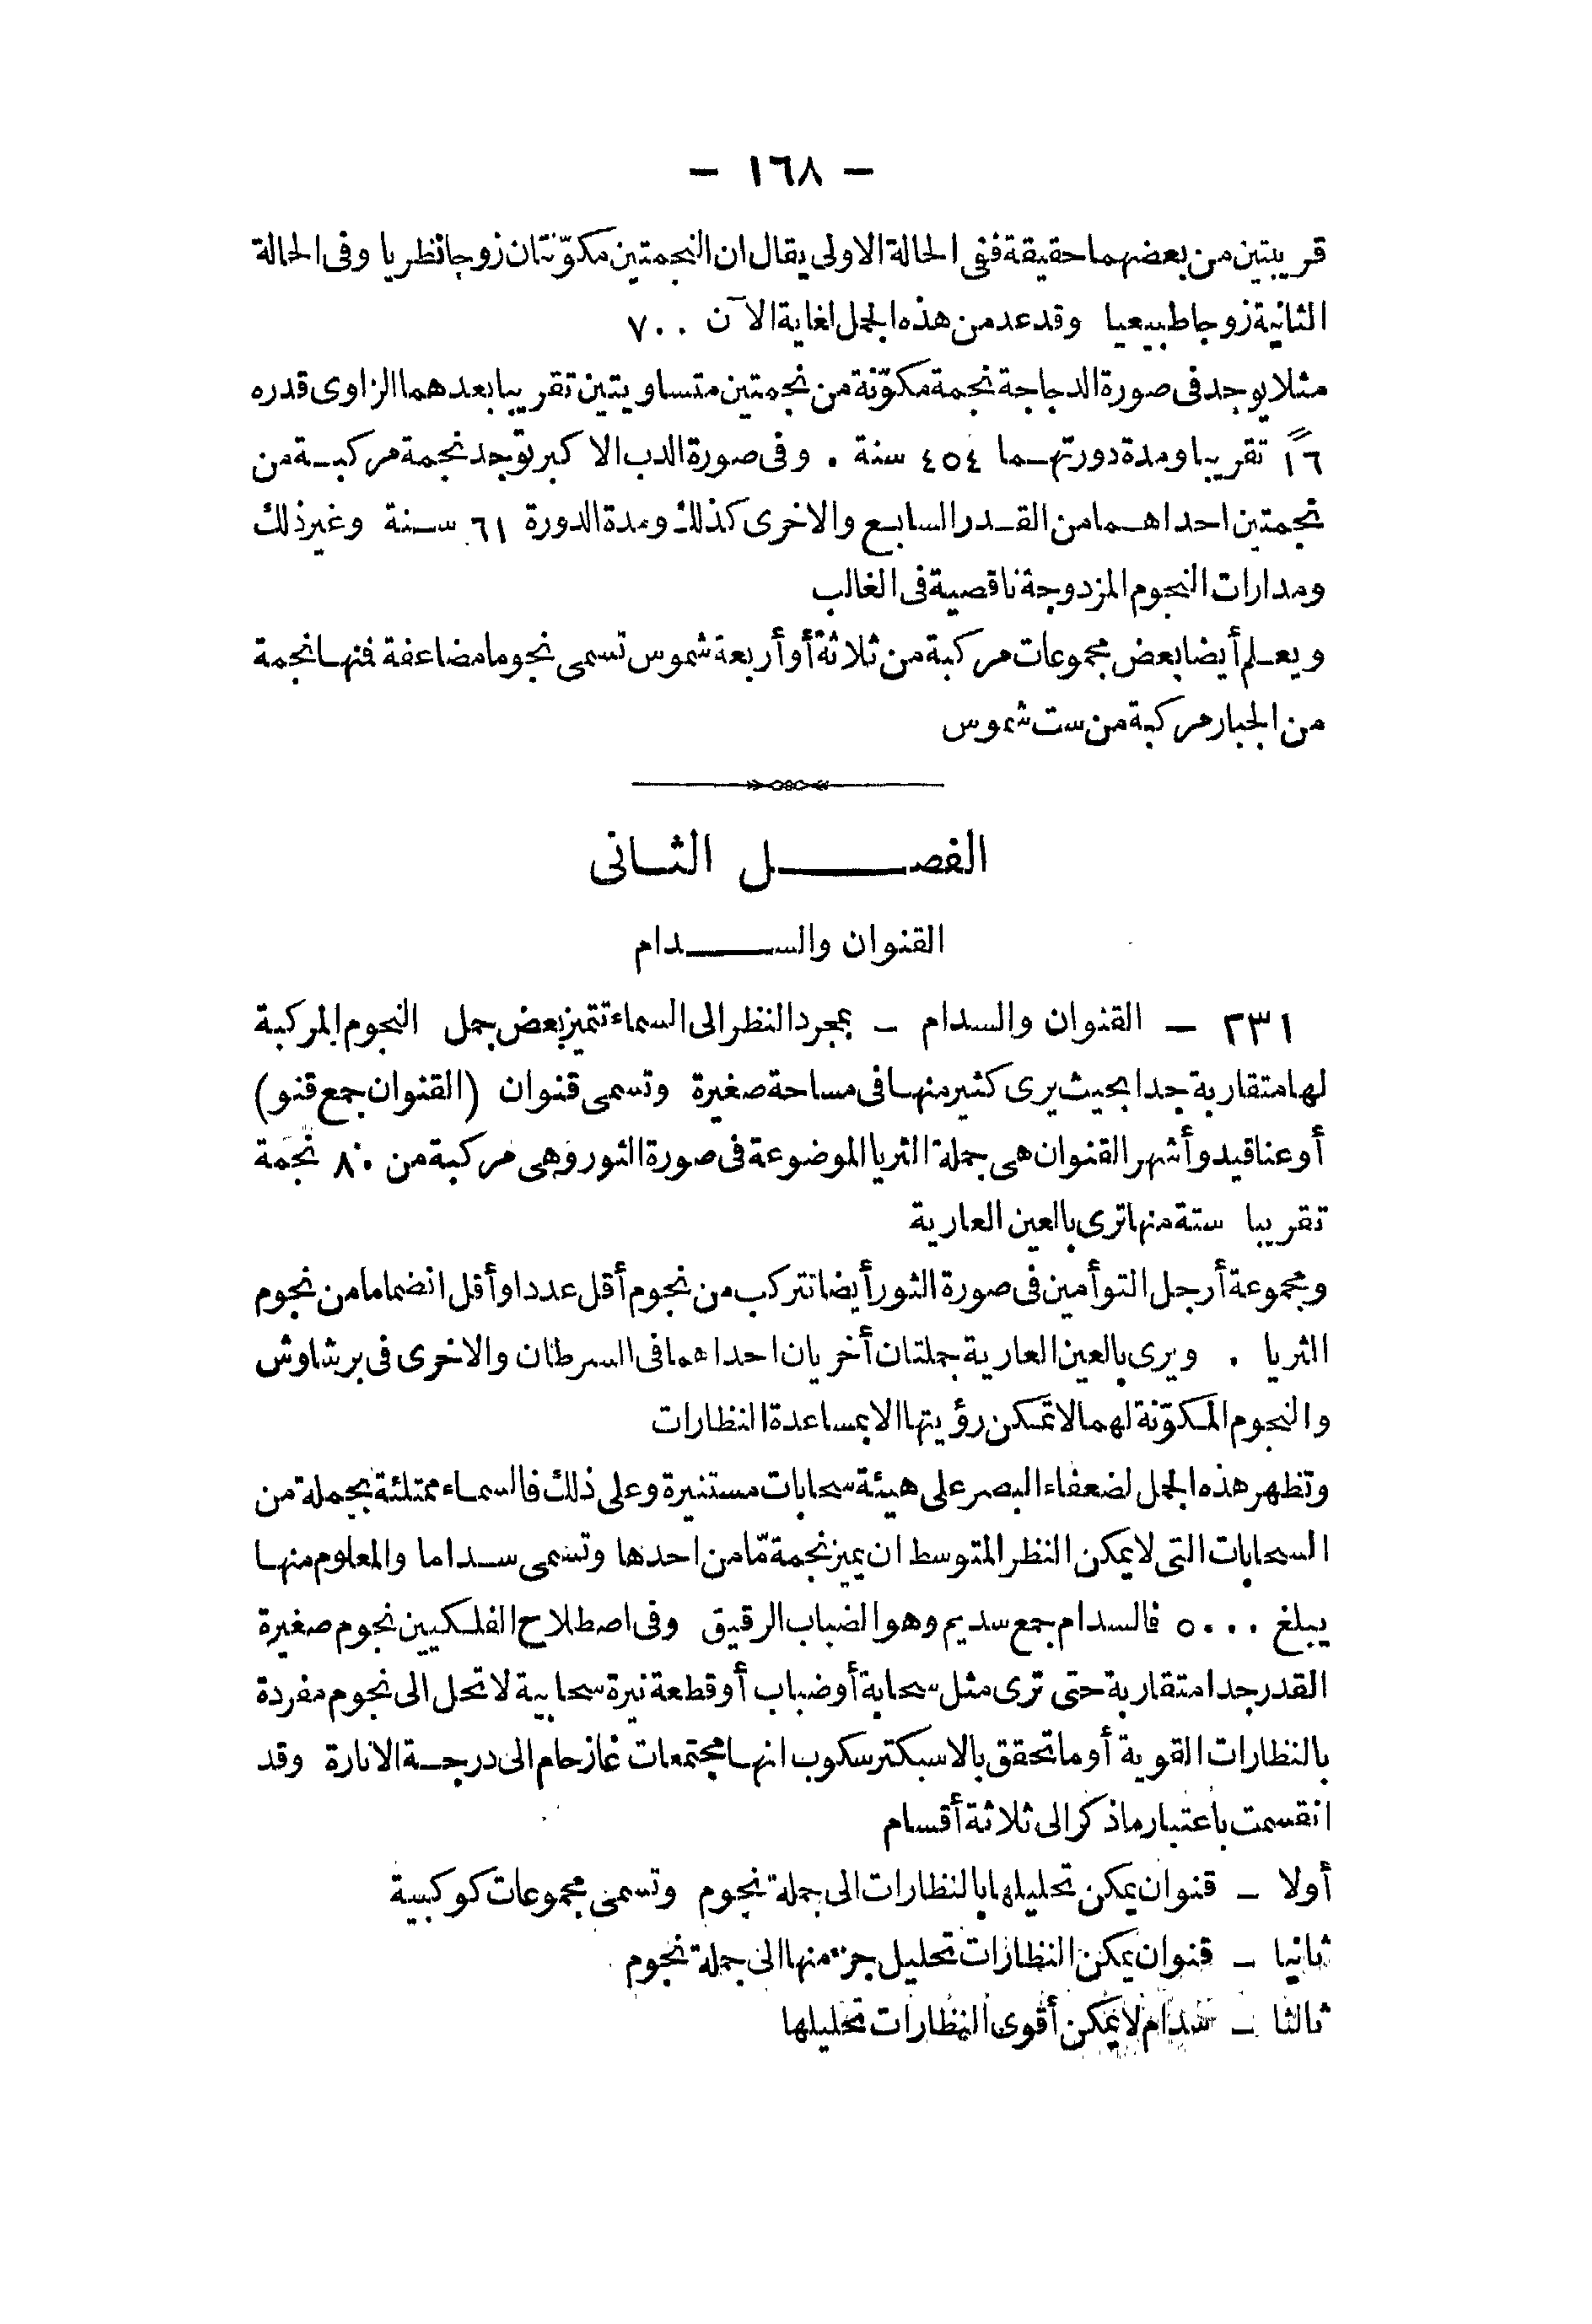 — ١٦٨ —
قريبتين من بعضهما حقيقة ففى الحالة الاولى يقال ان النجمتين مكوّنتان زوجا نظريا وفى الحالة
الثانية زوجا طبيعيا وقد عد من هذه الجمل لغاية الآن ٧٠٠
مثلا يوجد فى صورة الدجاجة نجمة مكوّنة من نجمتين متساويتين تقريبا بعدهما الزاوى قدره
١٦ً تقريبا ومدة دورتهما ٤٥٤ سنة . وفى صورة الدب الاكبر توجد نجمة مركبة من
نجمتين احداهما من القدر السابع والاخرى كذلك ومدة الدورة ٦١ سنة وغير ذلك
ومدارات النجوم المزدوجة ناقصية فى الغالب
ويعلم أيضا بعض مجموعات مركبة من ثلاثة أو أربعة شموس تسمى نجوما مضاعفة فنها نجمة
من الجبار مركبة من ست شموس
الفصل الثانى
القنوان والسدام
٢٣١ — القنوان والسدام — بمجرد النظر الى السماء تتميز بعض جمل النجوم المركبة
لها متقاربة جدا بحيث يرى كثير منها فى مساحة صغيرة وتسمى قنوان (القنوان جمع قنو)
أو عناقيد وأشهر القنوان هى جملة الثريا الموضوعة فى صورة الثور وهى مركبة من ٨٠ نجمة
تقريبا ستة منها ترى بالعين العارية
ومجموعة أرجل التوأمين فى صورة الثور أيضا تتركب من نجوم أقل عددا وأقل انضماما من نجوم
الثريا . ويرى بالعين العارية جملتان أخريان احداهما فى السرطان والاخرى فى برشاوش
والنجوم المكوّنة لهما لا تمكن رؤيتها الا بمساعدة النظارات
وتظهر هذه الجمل لضعفاء البصر على هيئة سحابات مستنيرة وعلى ذلك فالسماء ممتلئة بجملة من
السحابات التى لا يمكن النظر المتوسط ان يميز نجمة مّا من احدها وتسمى سداما والمعلوم منها
يبلغ ٥٠٠٠ فالسدام جمع سديم وهو الضباب الرقيق وفى اصطلاح الفلكيين نجوم صغيرة
القدر جدا متقاربة حتى ترى مثل سحابة أو ضباب أو قطعة نيرة سحابية لا تحل الى نجوم مفردة
بالنظارات القوية أو ما تحقق بالاسبكترسكوب انها مجتمعات غاز حام الى درجة الانارة وقد
انقسمت باعتبار ماذكر الى ثلاثة أقسام
أولا — قنوان يمكن تحليلها بالنظارات الى جملة نجوم وتسمى مجموعات كوكبية
ثانيا — قنوان يمكن النظارات تحليل جزء منها الى جملة نجوم
ثالثا — سدام لا يمكن أقوى النظارات تحليلها